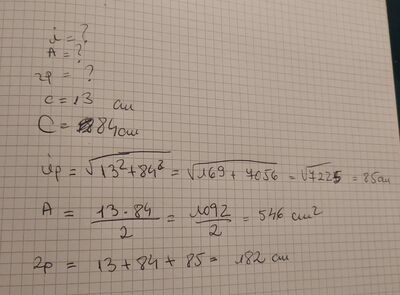 i = ?
A = ?
2p = ?
c = 13 cm
C = 84 cm
ip = √13² + 84² = √169 + 7056 = √7225 = 85 cm
A = 13 · 84 / 2 = 1092 / 2 = 546 cm²
2p = 13 + 84 + 85 = 182 cm